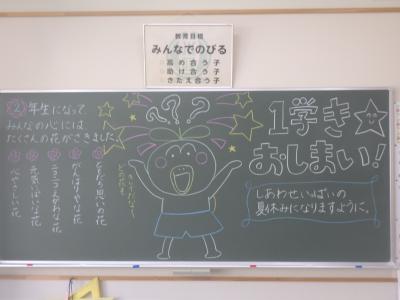 教育目標
みんなでのびる
○高め合う子
○助け合う子
○きたえ合う子
1学き
おしまい!
しあわせいっぱいの
夏休みになりますように。
???
②年生になって、
みんなの心には
たくさんの花がさきました
ともだち思いの花
がんばりやな花
ニコニコえがおな花
元気いっぱいな花
べんきょうしい花
きいてたな〜
どの花も。